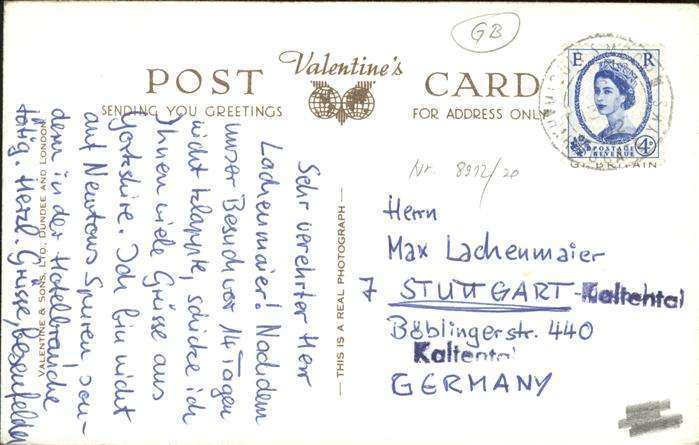 GB
Valentine's
POST CARD
SENDING YOU GREETINGS
FOR ADDRESS ONLY
E R
POSTAGE
REVENUE
4D
Sehr verehrter Herr
Lachenmaier! Nachdem
unser Besuch vor 14 Tagen
nicht klappte, schicke ich
Ihnen viele Grüsse aus
Yorkshire. Ich bin nicht
auf Newtons Spuren, son-
dern in der Hotelbranche
tätig. Herzl. Grüsse,
VALENTINE & SONS, LTD., DUNDEE AND LONDON
— THIS IS A REAL PHOTOGRAPH —
Nr. 8912/20
Herrn
Max Lachenmaier
7 STUTTGART-Kaltental
Böblingerstr. 440
Kaltental
GERMANY